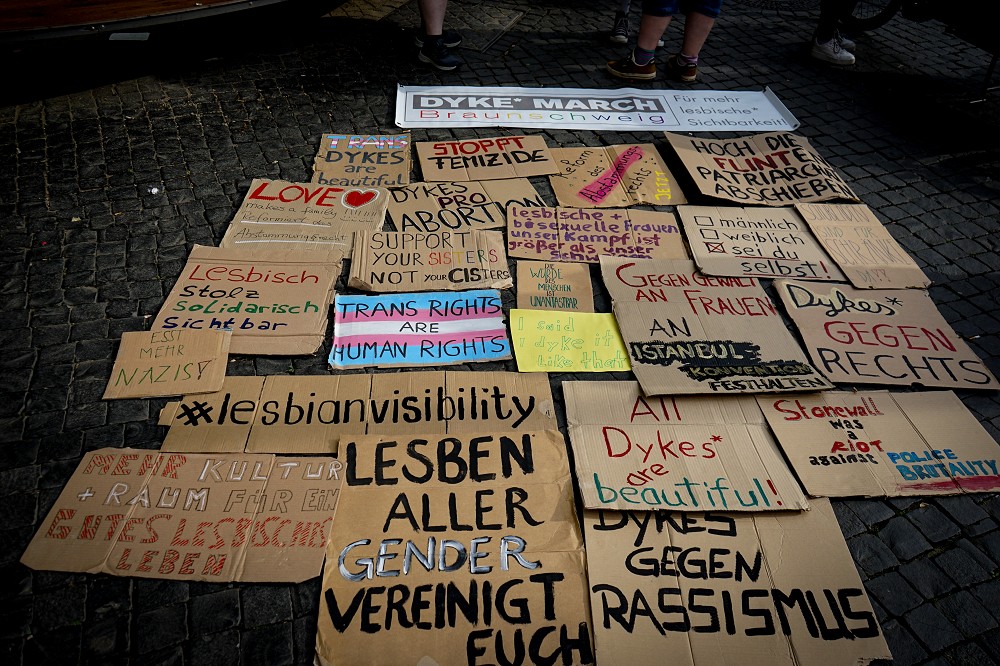 DYKE* MARCH
Braunschweig
Für mehr
lesbische*
Sichtbarkeit!
TRANS
DYKES
are
beautiful
STOPPT
FEMIZIDE
Reform
des
Abstammungs-
rechts
JETZT
HOCH DIE
FLINT*EN
PATRIARCHAT
ABSCHIEBEN
LOVE
makes a family !!!!!!!
Reformiert das
Abstammungsrecht
DYKES
PRO
ABORTION
lesbische +
bisexuelle Frauen
unser Kampf ist
größer als unser
männlich
weiblich
sei du
selbst!
SUPPORT
YOUR SISTERS
NOT YOUR CISTERS
DIE
WÜRDE DES
MENSCHEN
IST
UNANTASTBAR
Lesbisch
Stolz
Solidarisch
Sichtbar
TRANS RIGHTS
ARE
HUMAN RIGHTS
I said
I dyke it
like that
GEGEN GEWALT
AN FRAUEN
AN
ISTANBUL
KONVENTION
FESTHALTEN
Dykes*
GEGEN
RECHTS
ESST
MEHR
NAZIS!
#lesbianvisibility
All
Dykes*
are
beautiful!
Stonewall
was
a
RIOT
against
POLICE
BRUTALITY
MEHR KULTUR
+ RAUM FÜR EIN
GUTES LESBISCHES
LEBEN
LESBEN
ALLER
GENDER
VEREINIGT
EUCH
DYKES
GEGEN
RASSISMUS